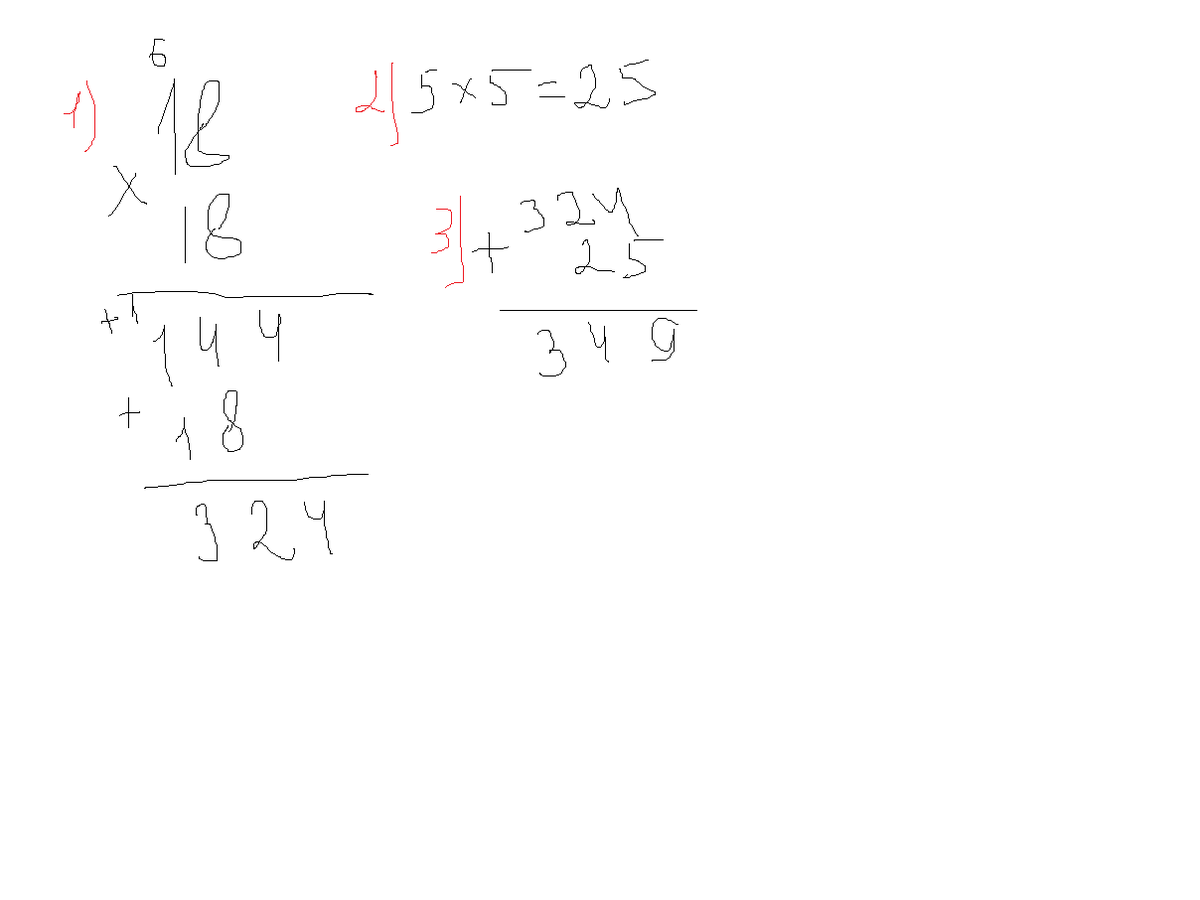 1)
6
18
x
18
+1
144
+
18
324
2) 5 x 5 = 25
3)
324
+
25
349